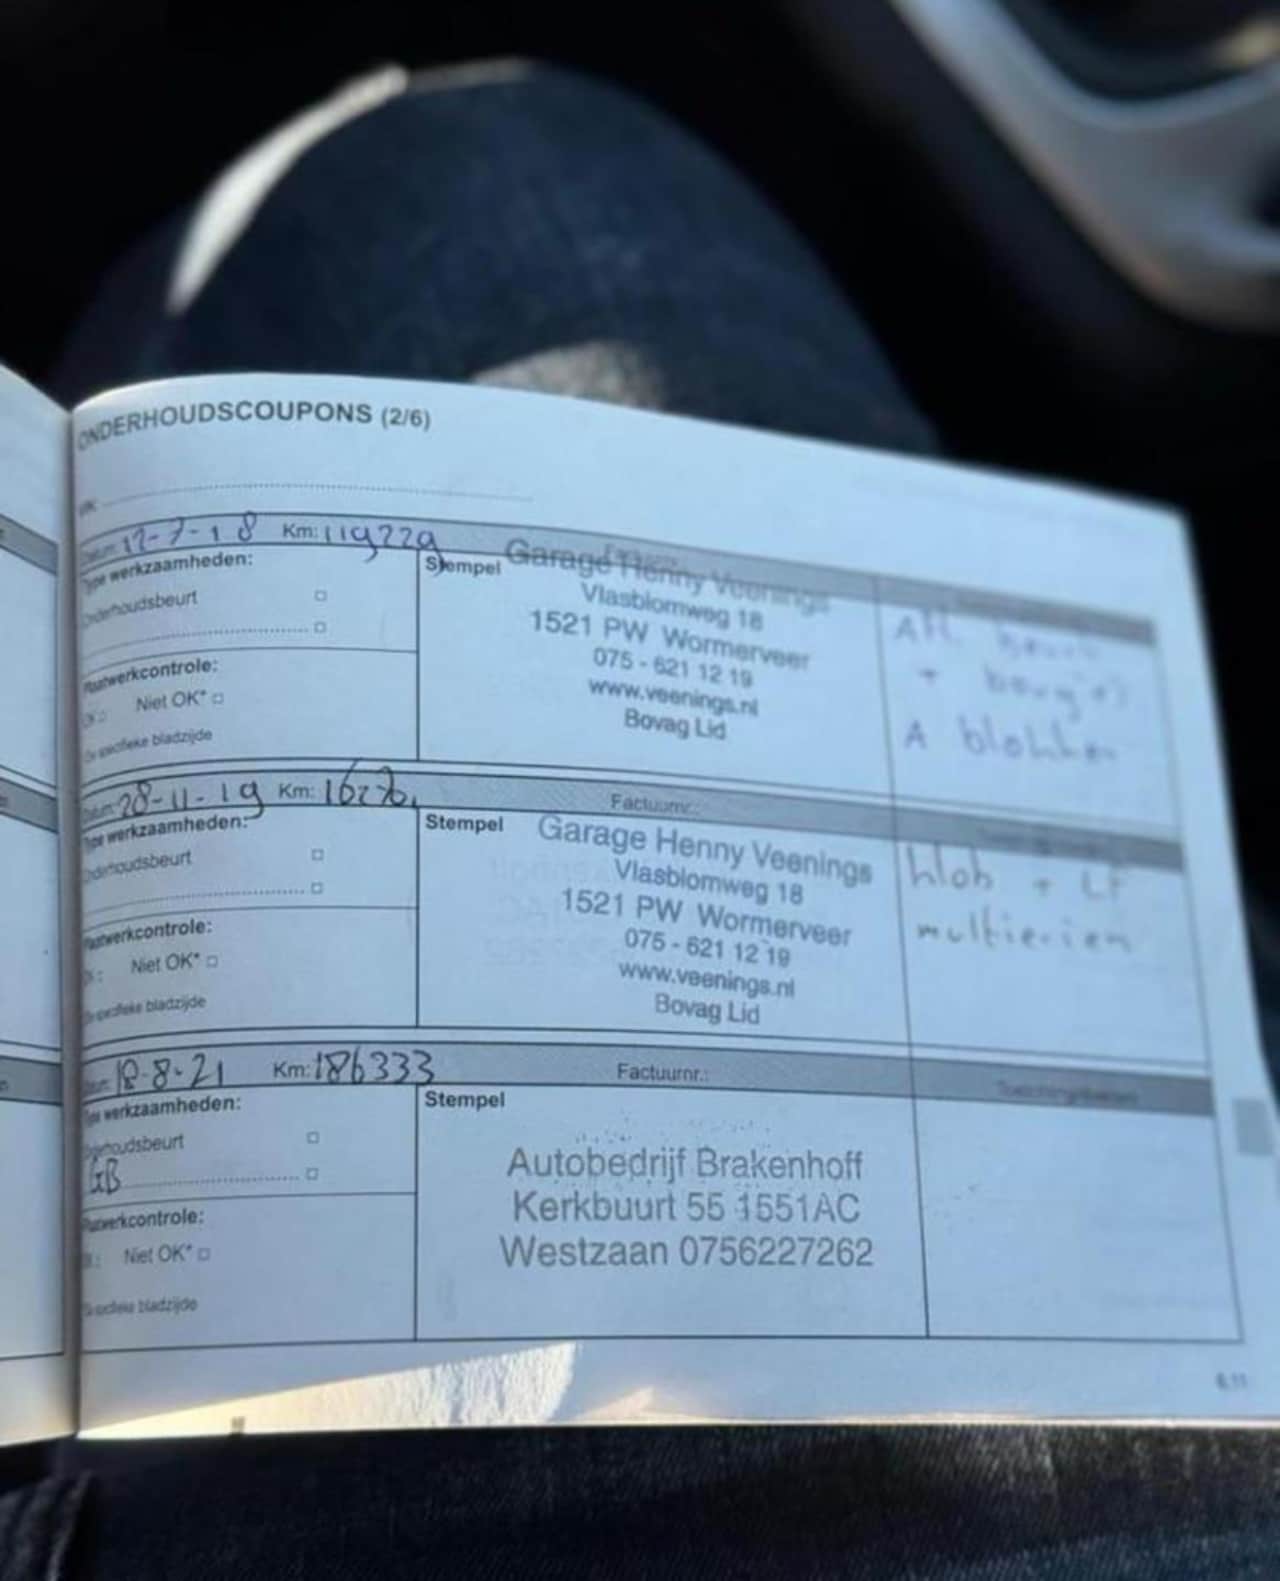 ONDERHOUDSCOUPONS (2/6)
Datum: 12-7-18 Km: 119229
Type werkzaamheden:
Stempel
Onderhoudsbeurt
Garage Henny Veenings
Vlasblomweg 18
1521 PW Wormerveer
075 - 621 12 19
www.veenings.nl
Bovag Lid
A blokken
Plaatwerkcontrole:
OK: Niet OK*
Zie specifieke bladzijde
Datum: 28-11-19 Km: Factuurnr.:
Type werkzaamheden:
Stempel
Onderhoudsbeurt
Garage Henny Veenings
Vlasblomweg 18
1521 PW Wormerveer
075 - 621 12 19
www.veenings.nl
Bovag Lid
+ LF
multirièm
Plaatwerkcontrole:
OK: Niet OK*
Zie specifieke bladzijde
Datum: 18-8-21 Km: 186333 Factuurnr.:
Type werkzaamheden:
Stempel
Onderhoudsbeurt
GB
Autobedrijf Brakenhoff
Kerkbuurt 55 1551AC
Westzaan 0756227262
Plaatwerkcontrole:
OK: Niet OK*
Zie specifieke bladzijde
6.11